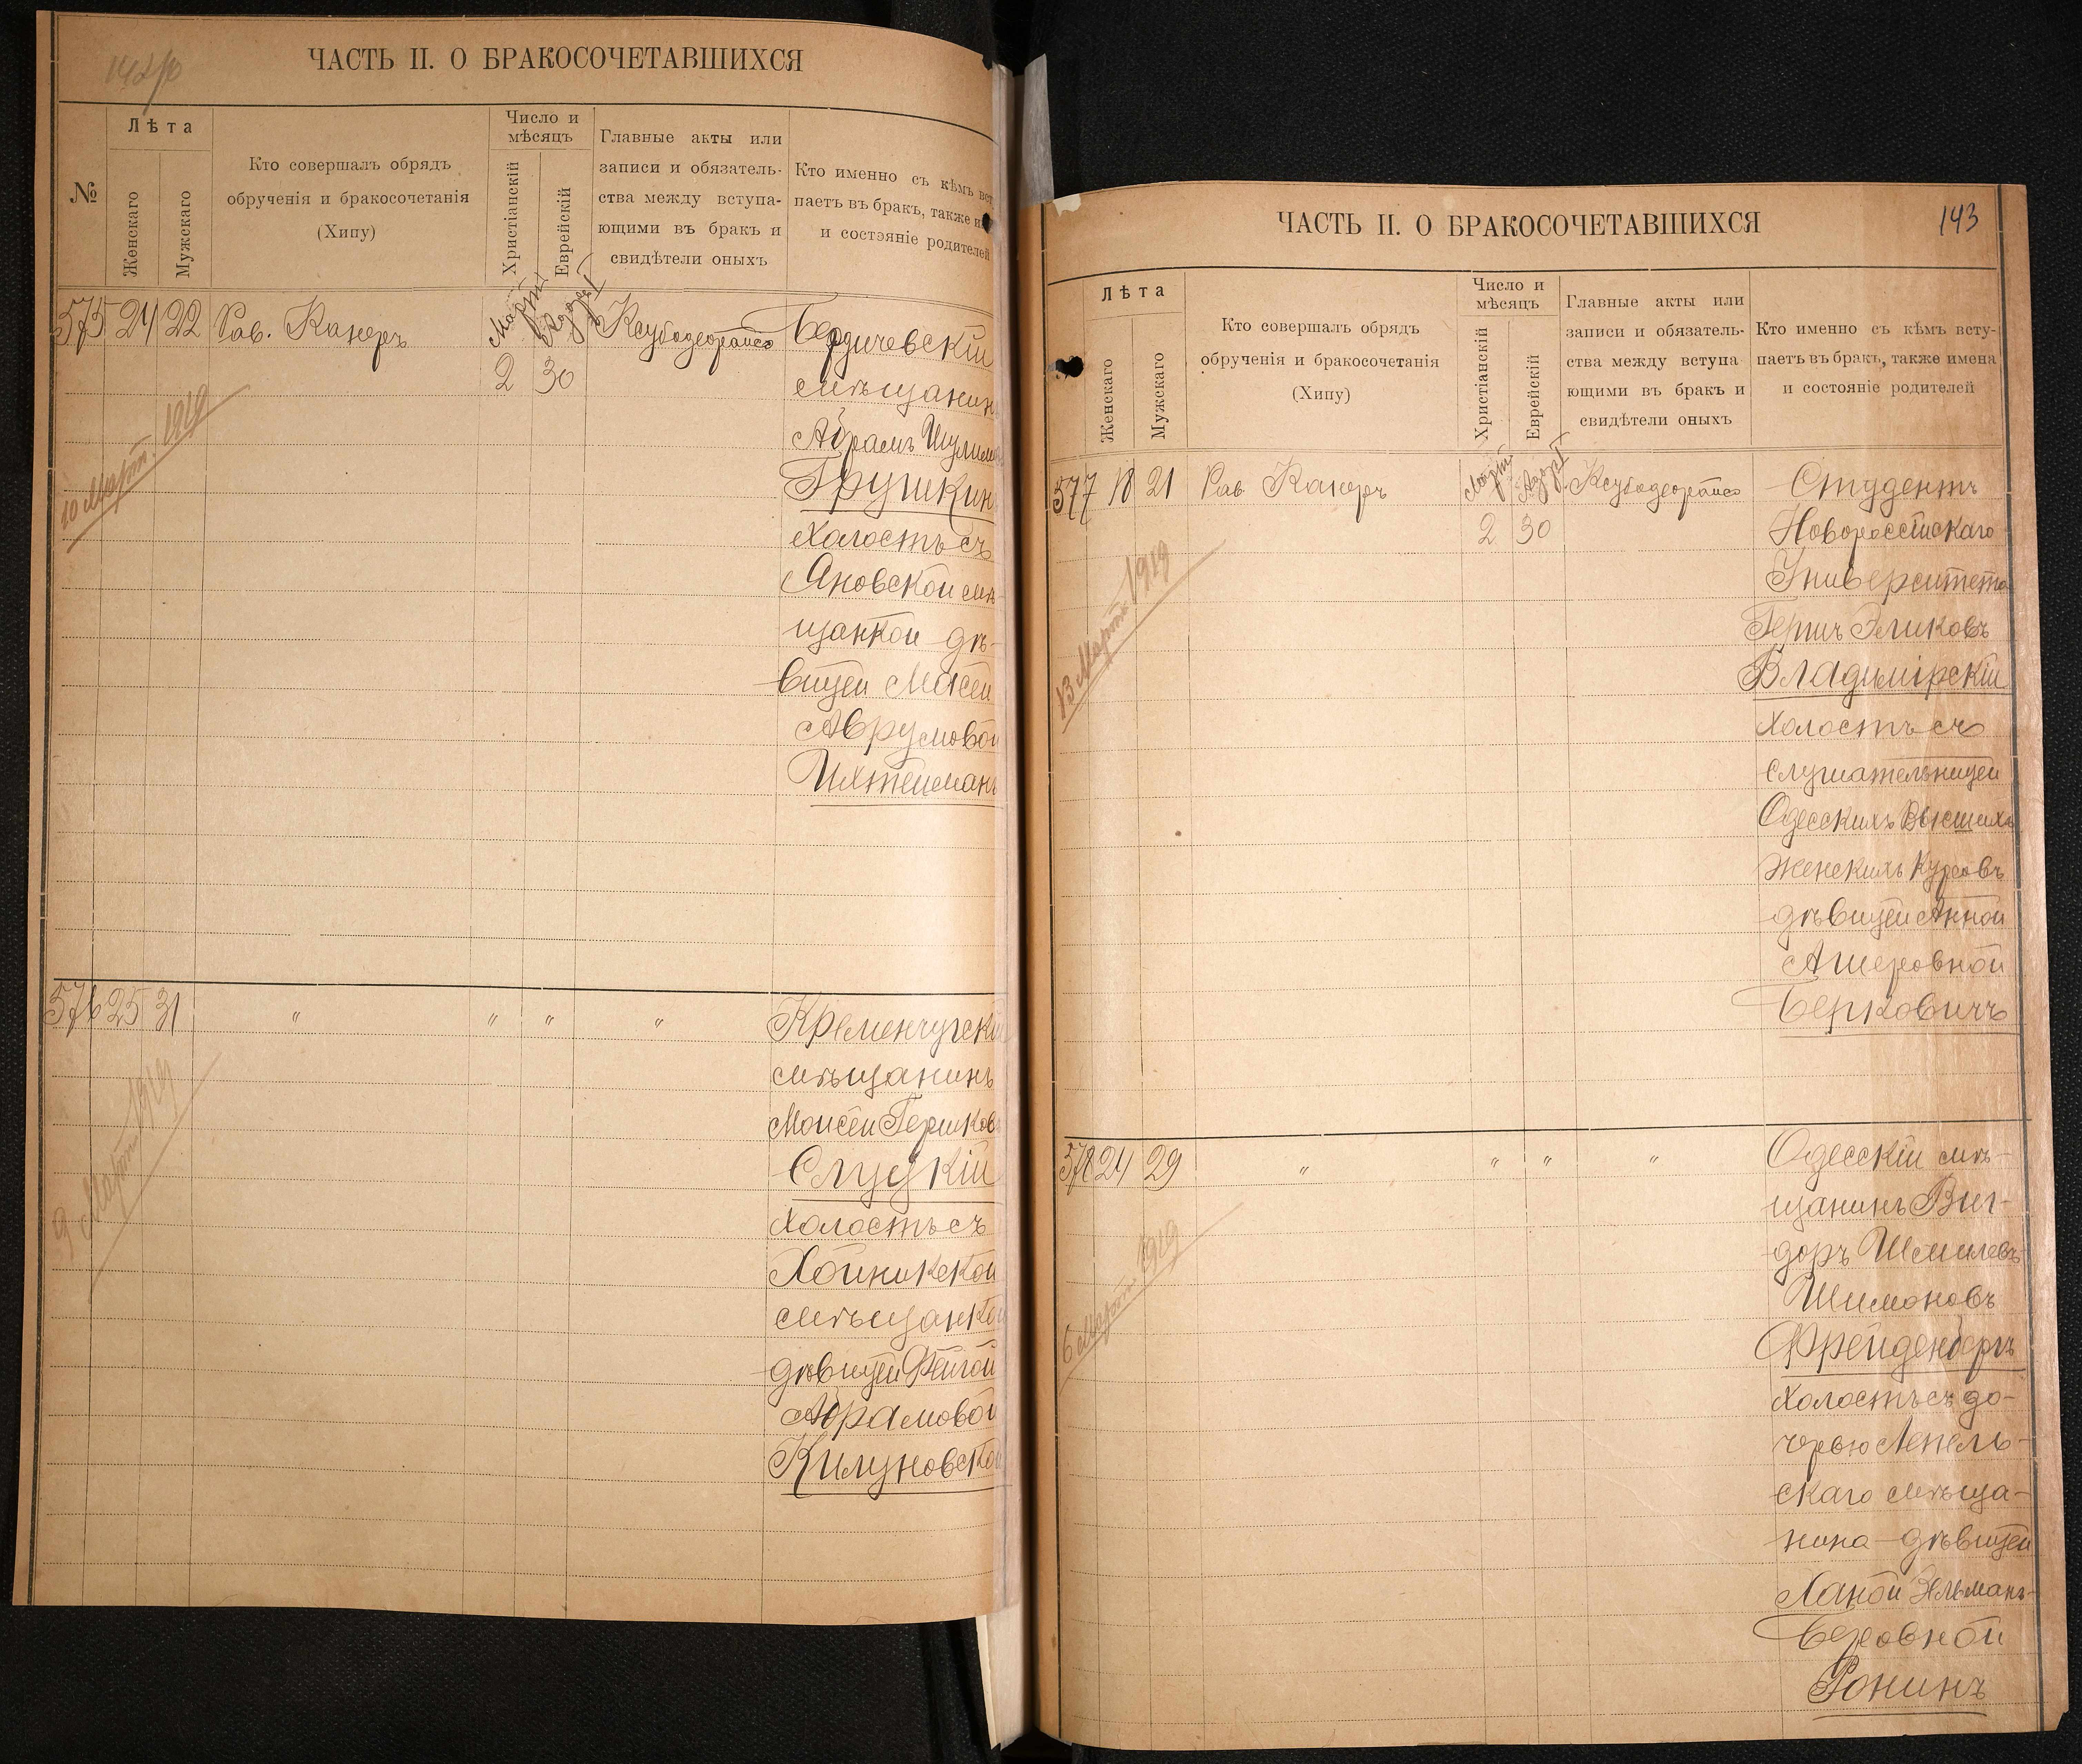 ЧАСТЬ II. О БРАКОСОЧЕТАВШИХСЯ
№
Лѣта
Женскаго
Мужскаго
Кто совершалъ обрядъ
обрученія и бракосочетанія
(Хипу)
Число и
мѣсяцъ
Христіанскій
Еврейскій
Главные акты или
записи и обязатель-
ства между вступа-
ющими въ бракъ и
свидѣтели оныхъ
Кто именно съ кѣмъ вст
паетъ въ бракъ, также и
и состояніе родителей
575 24 22 Рав. Канеръ Март Адаръ I Ксубадеорайса Бердичевскій
2 30 мѣщанинъ
Абрамъ Шулимов
Грушкин
холостъ съ
Яновской мѣ-
щанкой дѣ-
вицей Маней
Аврумовой
Ихтейманъ
10 Март. 1919
576 25 31 " " " " Кременчугскій
мѣщанинъ
Моисей Гершков
Слуцкій
холостъ съ
Хойникской
мѣщанкой
дѣвицей Фейгой
Абрамовой
Килуновской
9 Март 1919
ЧАСТЬ II. О БРАКОСОЧЕТАВШИХСЯ
143
Лѣта
Женскаго
Мужскаго
Кто совершалъ обрядъ
обрученія и бракосочетанія
(Хипу)
Число и
мѣсяцъ
Христіанскій
Еврейскій
Главные акты или
записи и обязатель-
ства между вступа
ющими въ бракъ и
свидѣтели оныхъ
Кто именно съ кѣмъ всту-
паетъ въ бракъ, также имена
и состояніе родителей
577 18 21 Рав Канеръ Март Адаръ I Ксубадеорайса Студентъ
2 30 Новороссійскаго
Университета
Гершъ Эликовъ
Владимірскій
холостъ съ
слушательницей
Одесскихъ Высшихъ
Женскихъ Курсовъ
дѣвицей Анной
Ашеровной
Берковичъ
13 Март 1919
578 24 29 " " " " Одесскій мѣ-
щанинъ Виг-
доръ Шмилевъ
Шимоновъ
Фрейденбергъ
холостъ съ до-
черью Лепель-
скаго мѣща-
нина дѣвицей
Ханой Эльманъ-
Беровной
Ронинъ
6 Март 1919